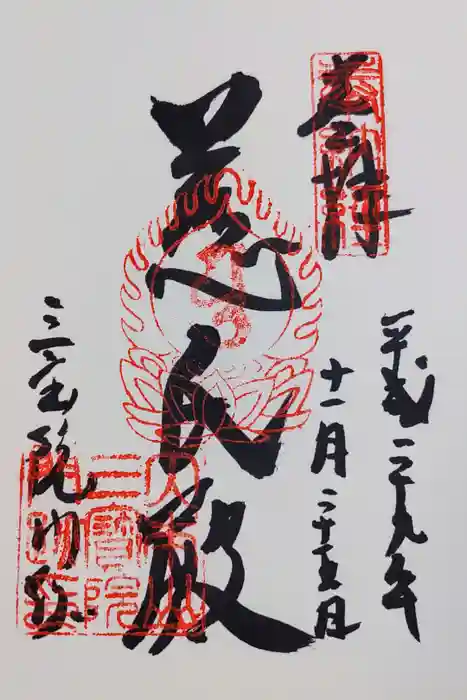 奉拝
平成二十九年
十一月二十五日
慈氏殿
三宝院門跡
三寶院